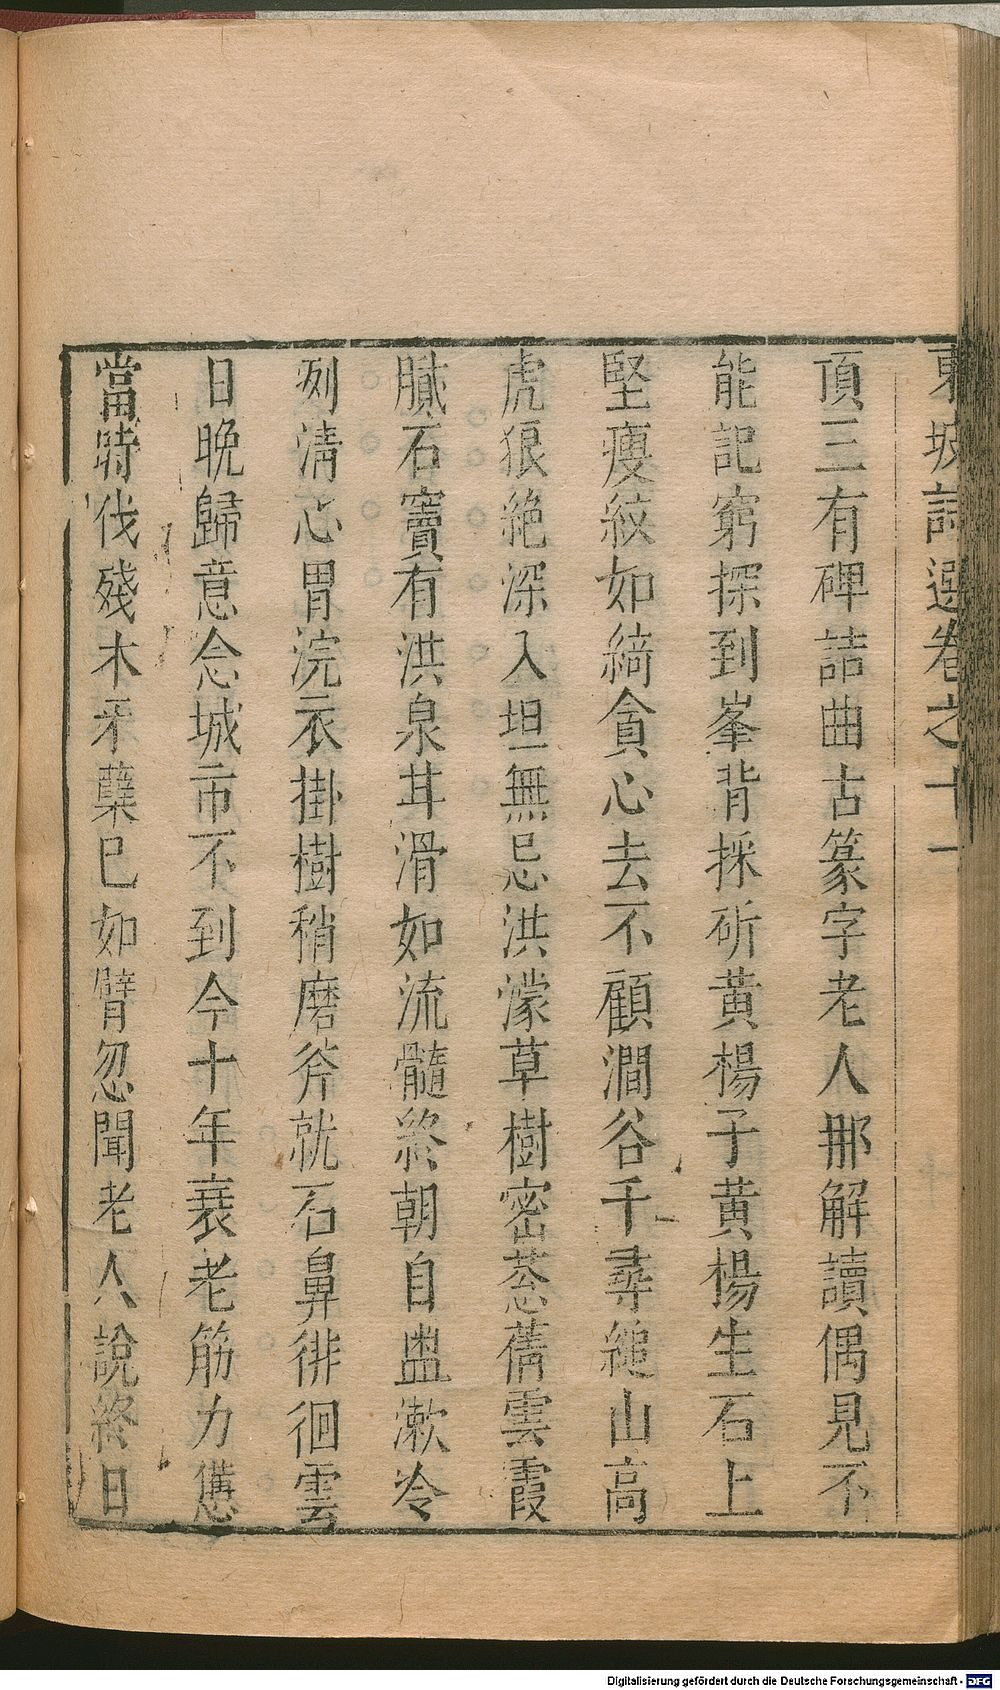 東坡詩選卷之十一
頂三有碑詰曲古篆字老人那解讀偶見不
能記窮探到峯背採斫黃楊子黃楊生石上
堅瘦紋如綺貪心去不顧澗谷千尋縋山高
虎狼絕深入坦無忌洪濛草樹密葱蒨雲霞
膩石竇有洪泉甘滑如流髓終朝自盥漱冷
冽清心胃浣衣掛樹稍磨斧就石鼻徘徊雲
日晚歸意念城市不到今十年衰老筋力憊
當時伐殘木牙蘖已如臂忽聞老人說終日
Digitalisierung gefördert durch die Deutsche Forschungsgemeinschaft - DFG